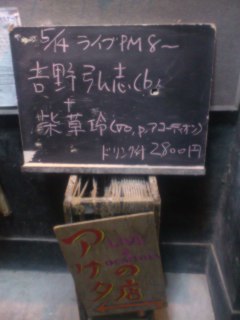 5/4 ライブPM8〜
吉野弘志(b)
+
柴草玲(vo,p,アコーディオン)
ドリンク付 2800円
アナタ
の店